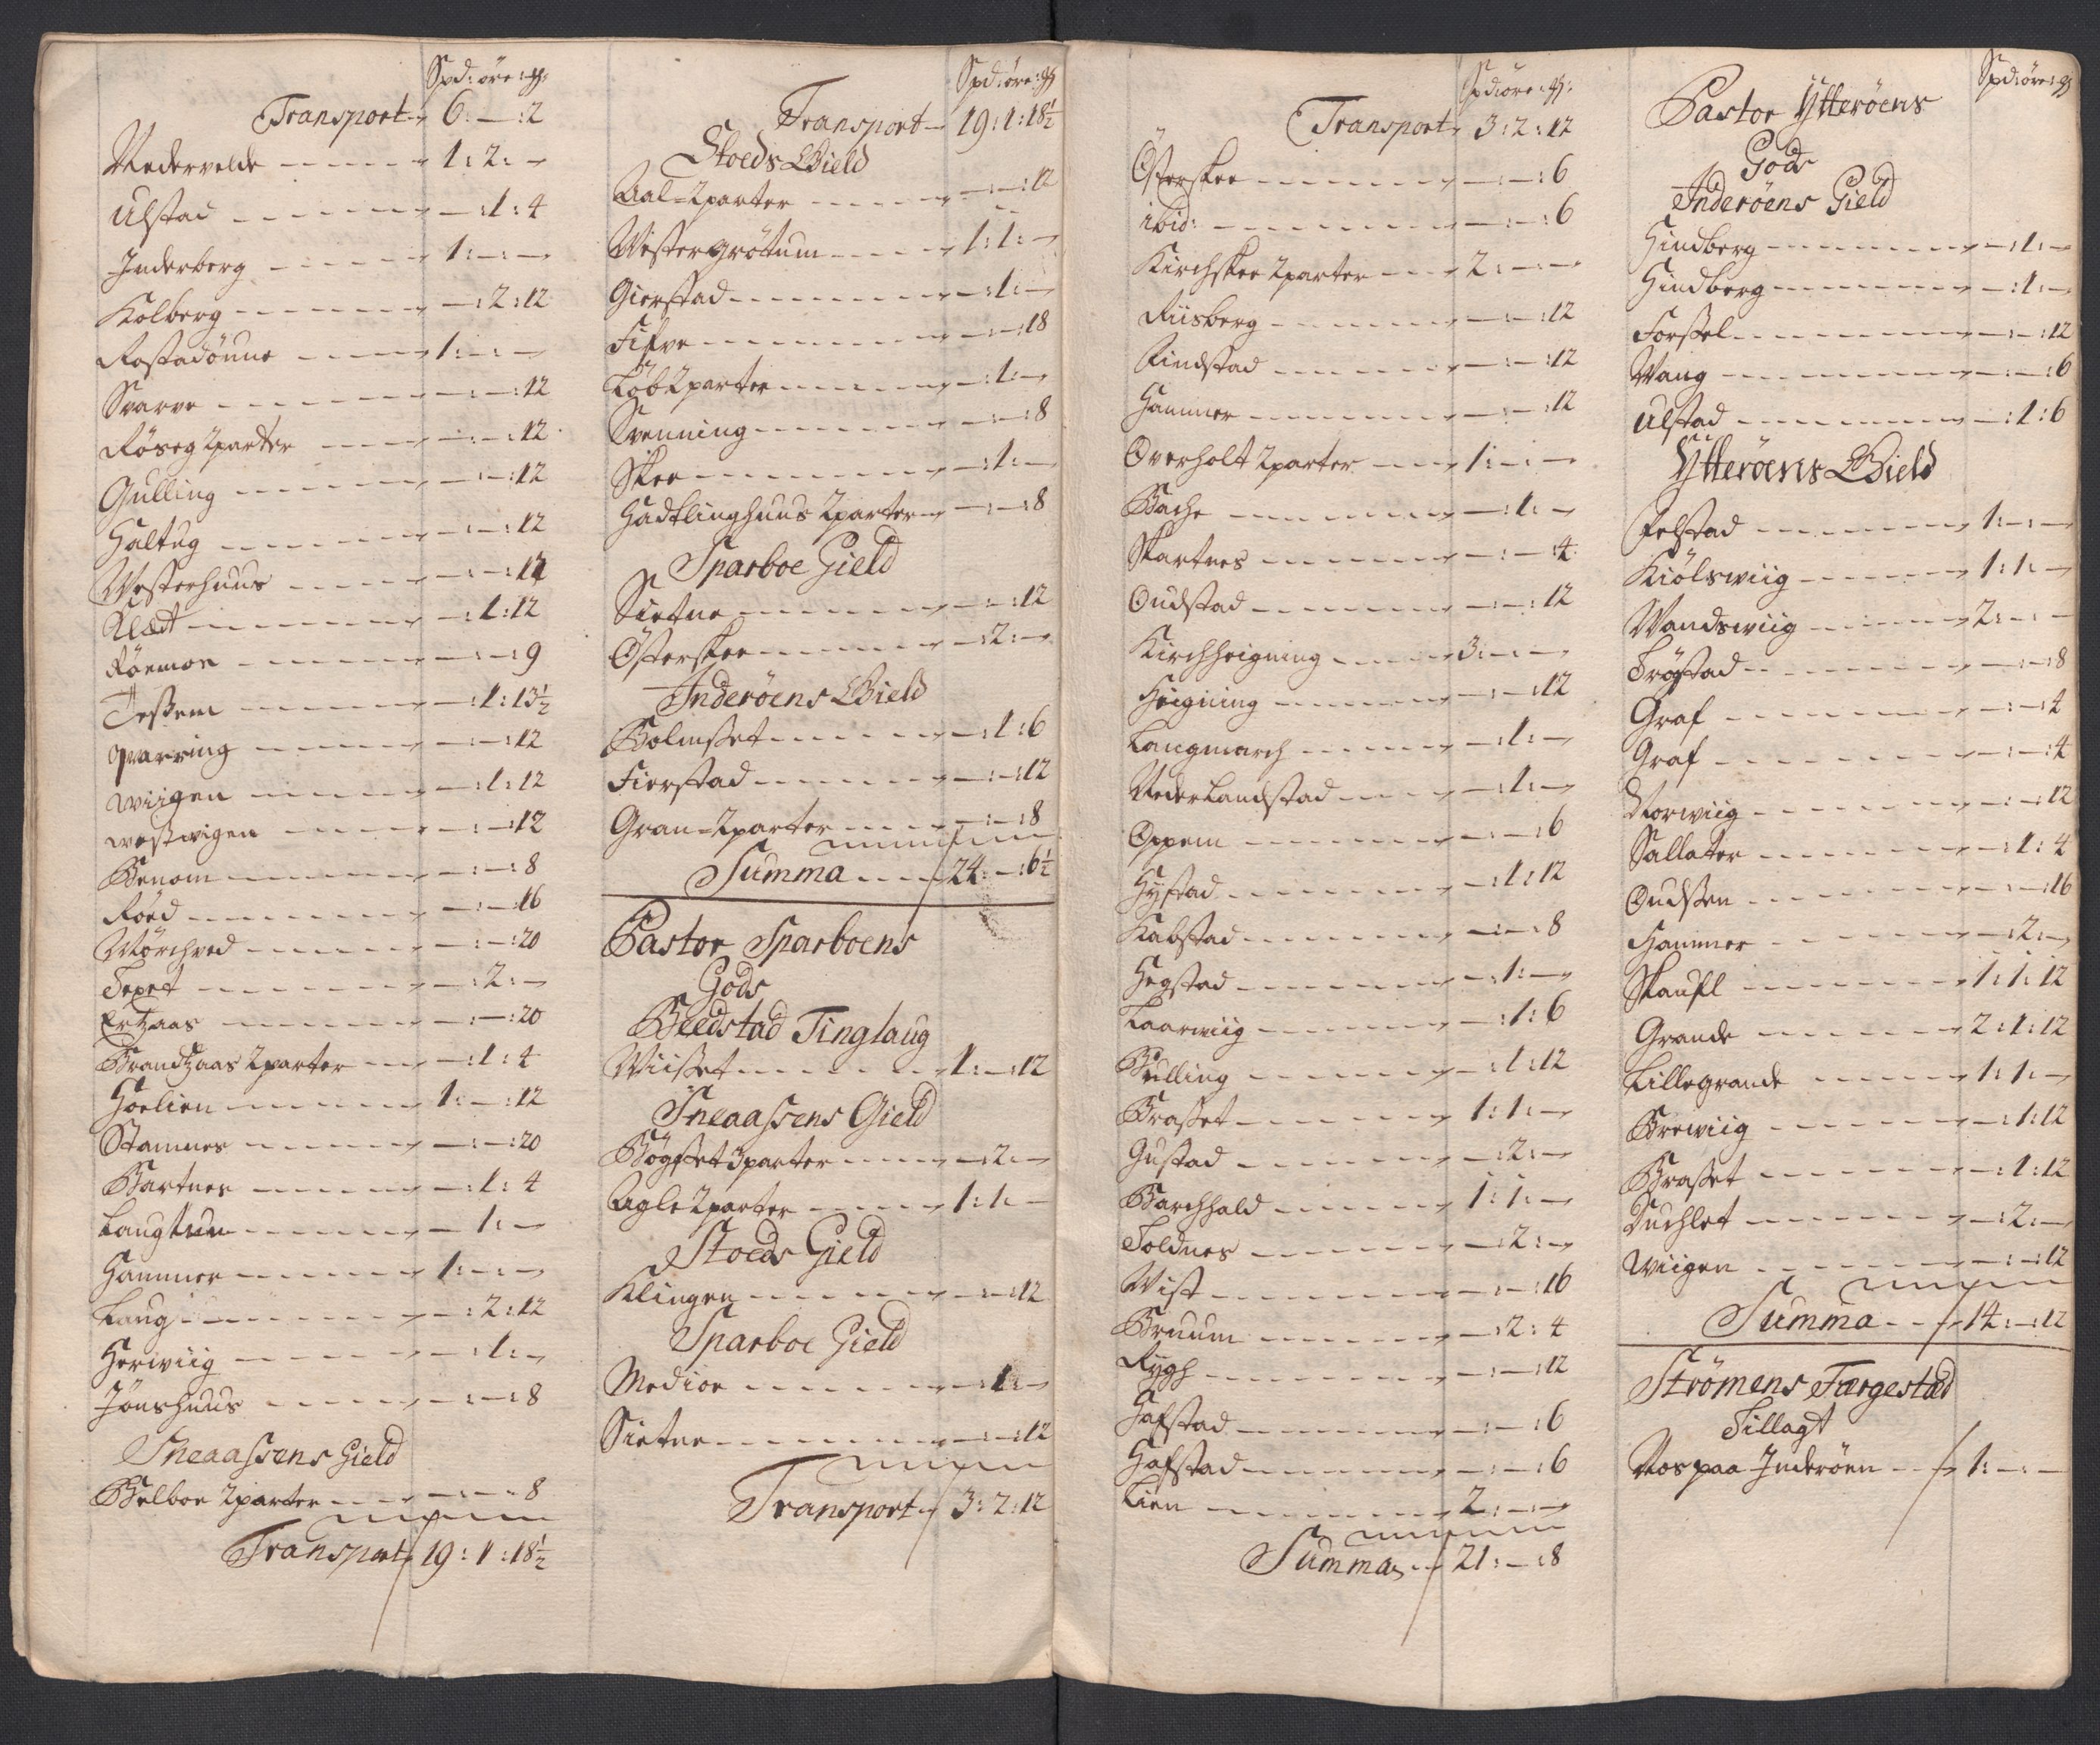 Spd: öre: 
Transport 6: — :2
Nedervelde 1: 2: —
Ulstad — :1: 4
Inderberg 1: — : —
Kolberg — :2: 12
Rostadönne 1: — : —
Svarve — : — :12
Röseg 2parter — : — :12
Gulling — : — :12
Haltug — : — :12
Westerhuus — : — :12
Klædt — :1:12
Röemoe — : — :9
Tessem — :1: 13½
Qvarving — : — :12
Wiigen — :1:12
Westwigen — : — :12
Benom — : — :8
Röed — : — :16
Mörchved — : — :20
Texet — :2: —
Ertzaas — : — :20
Brandtzaas 2parter — :1: 4
Hoelien 1: — :12
Stamnes — : — :20
Bartnes — :1: 4
Langtun — 1: —
Hammer 1: — : —
Laug — :2:12
Herwiig — :1: —
Jönshuus — : — :8
Sneaassens Gield
Belboe 2parter — : — :8
Transport 19: 1 :18½
Spd: öre: 
Transport 19:1:18½
Stoeds Gield
Aal=2parter — : — :12
Westergrötum 1:1: —
Gierstad — :1: —
Fifve — : — :18
Töb 2parter — :1: —
Svenning — : — :8
Skee — :1: —
Hadtlinghuus 2parter — : — :8
Sparboe Gield
Sietne — : — :12
Österskee — :2: —
Inderöens Gield
Bolmsset — :1:6
Fierstad — : — :12
Gran=2parter — : — :8
Summa 24: — :6½
Pastor Sparboens
Gods
Beedstad Tinglaug
Wiisset 1: — :12
Sneaassens Gield
Bögsset 3parter — :2: —
Agle 2parter 1:1: —
Stoeds Gield
Klingen — : — :12
Sparboe Gield
Medioe — :1: —
Sietne — : — :12
Transport 3:2:12
Spd: öre: 
Transport 3:2:12
Österskee — : — :6
ibid: — : — :6
Kirchskee 2parter 2: — : —
Riisberg — : — :12
Findstad — : — :12
Hammer — : — :12
Overholt 2parter 1: — : —
Bache — :1: —
Skartnes — : — :4
Oudstad — : — :12
Kirchheigning 3: — : —
Heigning — : — :12
Langmarch — :1: —
Nederlandstad — :1: —
Oppem — : — :6
Hystad — :1:12
Kabstad — : — :8
Hegstad — :1: —
Laarwiig — :1: 6
Bulling — :1:12
Brasset 1:1: —
Gustad — :2: —
Barchhald 1:1: —
Toldnes — :2: —
Wist — : — :16
Bruum — :2: 4
Rygh — : — :12
Hafstad — : — :6
Hafstad — : — :6
Lien 2: — : —
Summa 21: — :8
Spd: öre: 
Pastor Ytteröens
Gods
Inderöens Gield
Hindberg — :1: —
Hindberg — :1: —
Forssel — : — :12
Wang — : — :6
Ulstad — :1:6
Ytteröens Gield
Felstad 1: — : —
Kiölswiig 1:1: —
Wandswiig 2: — : —
Trögstad — : — :8
Graf — : — :4
Graf — : — :4
Norwiig — : — :12
Sallater — :1: 4
Oudssen — : — :16
Hammer — :2: —
Skaufl 1:1:12
Grande 2:1:12
Lillegrande 1:1: —
Brewiig — :1:12
Brasset — :1:12
Duchlet — :2: —
Wiigen — : — :12
Summa 14: — :12
Strömens Færgestæd
Tillagt
Noes paa Inderöen 1: — : —